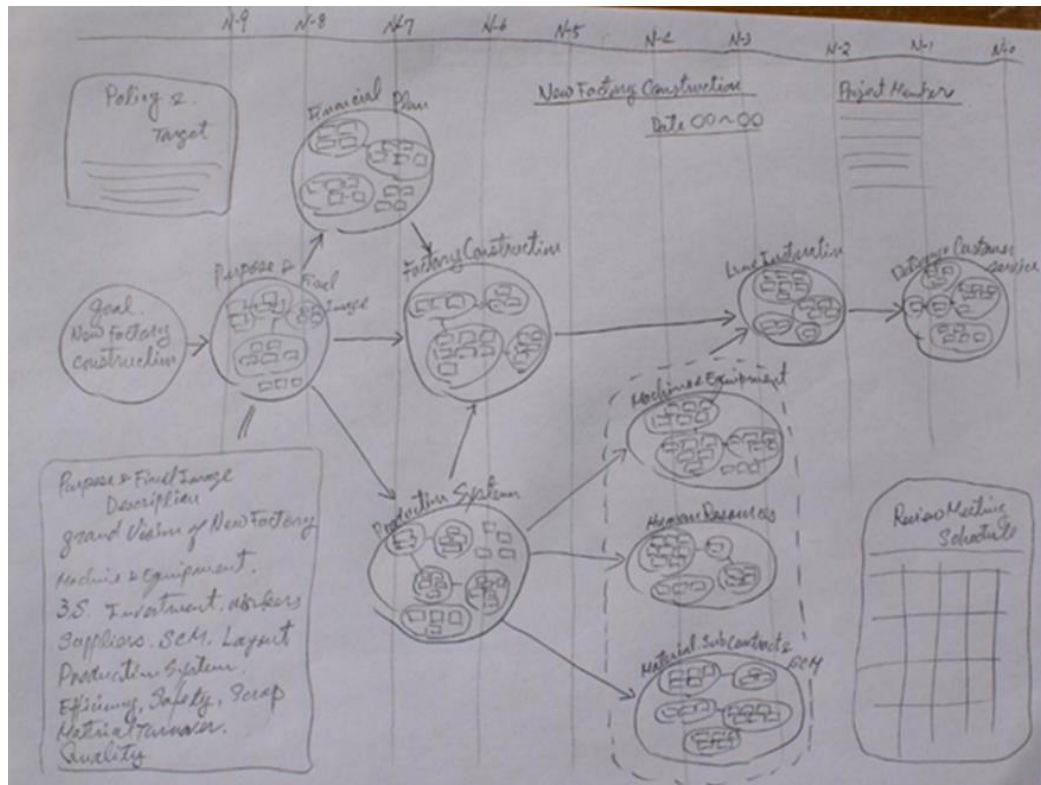 N-9 N-8 N-7 N-6 N-5 N-4 N-3 N-2 N-1 N-0
Policy &
Target
Financial Plan
New Factory Construction
Date OO~OO
Project Member
goal.
New Factory
construction
Purpose &
Final
Image
Factory Construction
Line
Customer
Service
Production System
Machine & Equipment
Human Resources
Material Subcontracts
SCM
Purpose & Final Image
Description
grand Vision of New Factory
Machine & Equipment.
3.S. Investment. workers
Suppliers. SCM. Layout
Production System.
Efficiency, Safety, Scrap
Material Turnover.
Quality
Review Meeting
Schedule